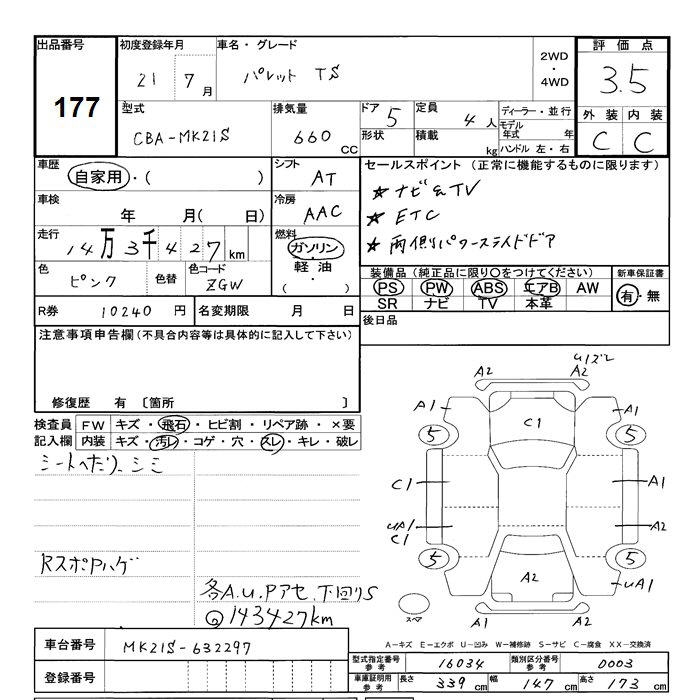 出品番号 初度登録年月 車名・グレード 2WD・4WD 評価点
177 21 7月 パレット TS 3.5
型式 排気量 ドア 5 定員 4人 ディーラー・並行 外装 内装
CBA-MK21S 660 CC 形状 積載 kg モデル年式 年 ハンドル 左・右 C C
車歴 自家用・( ) シフト AT セールスポイント (正常に機能するものに限ります)
車検 年 月( 日) 冷房 AAC ★ナビ&TV
★ETC
走行 14万3千427km 燃料 ガソリン 軽油 ・( ) ★両側パワースライドドア
色 ピンク 色替 色コード ZGW 装備品 (純正品に限り○をつけてください) 新車保証書
PS PW ABS エアB AW 有・無
SR ナビ TV 本革
R券 10240円 名変期限 月 日 後日品
注意事項申告欄 (不具合内容等は具体的に記入して下さい)
修復歴 有 〔箇所 〕
検査員 FW キズ・飛石・ヒビ割・リペア跡・×要
記入欄 内装 キズ・汚レ・コゲ・穴・スレ・キレ・破レ
シートへたり、シミ
RスポPハゲ
各A.U.Pアセ、下回りS
@143427km
A2 A2
A1 C1 A1
5 5
C1 A1
UA1 A2
C1
5 5
A2 UA1
スペア A1 A2
A-キズ E-エクボ U-凹み W-補修跡 S-サビ C-腐食 XX-交換済
車台番号 MK21S-632297
型式指定番号 参考 16034 類別区分番号 参考 0003
登録番号
車庫証明用 参考 長さ 339cm 幅 147cm 高さ 173cm